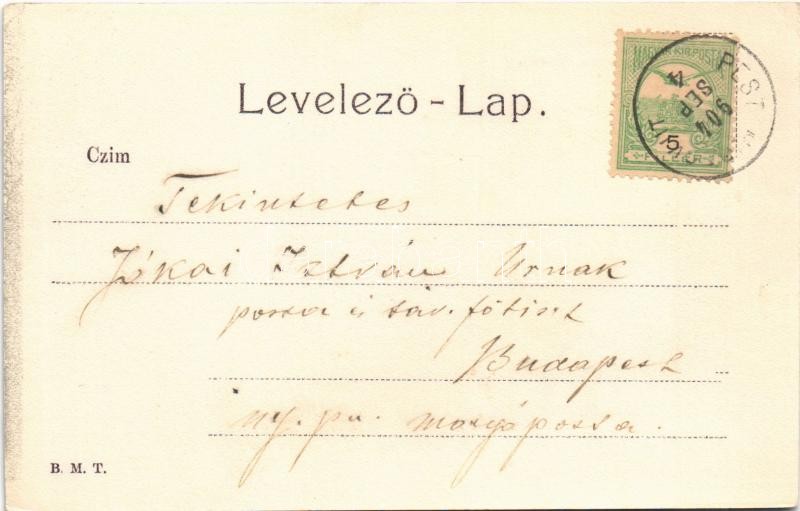 Levelező - Lap.
MAGYAR KIR. POSTA
5
FILLÉR
PEST
904
SEP
4
Czim
Tekintetes
Jókai István Urnak
posta és táv. főtiszt
Budapest
ny. pu. mozgóposta.
B. M. T.